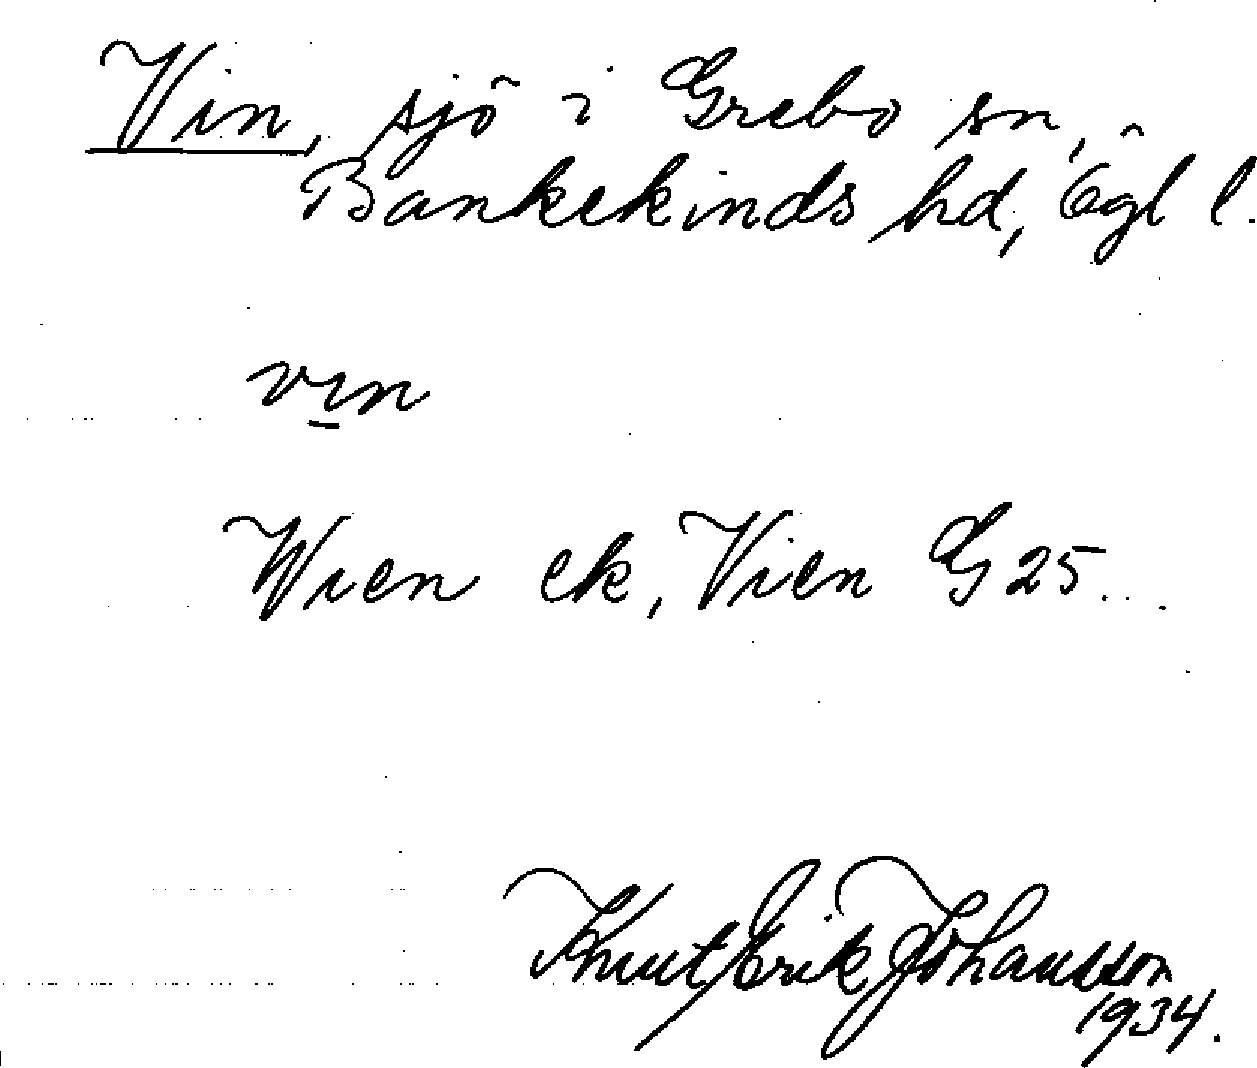 Vin, sjö i Grebo sn,
Bankekinds hd, Ögl l.
vın
Wien ek, Vien G 25.
Knut Erik Johansson
1934.